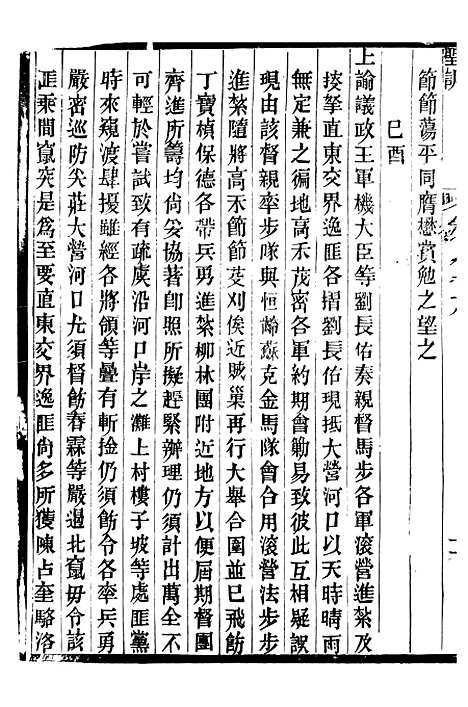 聖訓
節節蕩平同膺懋賞勉之望之
己酉
上諭議政王軍機大臣等劉長佑奏親督馬步各軍滾營進紮及
接拏直東交界逸匪各摺劉長佑現抵大營河口以天時晴雨
無定兼之徧地高禾茂密各軍約期會勦易致彼此互相疑誤
現由該督親率步隊與恒齡蘇克金馬隊會合用滾營法步步
進紮隨將高禾節節芟刈俟近賊巢再行大舉合圍並已飛飭
丁寶楨保德各帶兵勇進紮柳林團附近地方以便屆期督團
齊進所籌均尙妥協著卽照所擬趕緊辦理仍須計出萬全不
可輕於嘗試致有疏虞沿河口岸之灘上村樓子坡等處匪黨
時來窺渡肆擾雖經各將領等疊有斬捡仍須飭令各率兵勇
嚴密巡防尖莊大營河口尤須督飭春霖等嚴遏北竄毋令該
匪乘間竄突是爲至要直東交界逸匪尙多所獲陳占奎駱洛